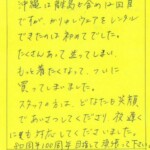 沖縄は離島が含め12回目
ですが、かりゆしウェアをレンタル
できたのは初めてでした。
たくさんあって迷ってしまい、
もっと着たくなって、ついに
買ってしまいました。
スタッフの方は、どなたも笑顔
であいさつくださり 夜遅く
にも対応してくださいました。
周年 100周年 目指して 頑張って下さい